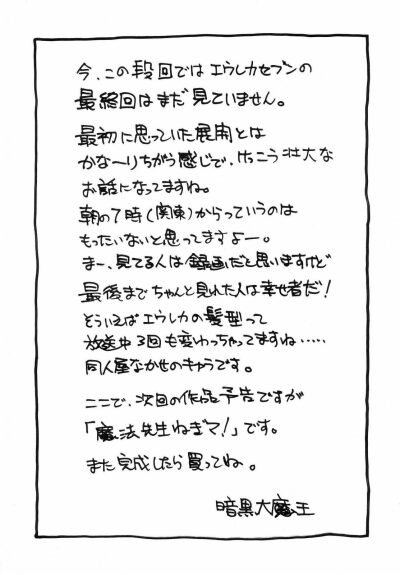 今、この段回では エウレカセブンの
最終回はまだ見ていません。
最初に思っていた展開とは
かな〜りちがう感じで、けっこう壮大な
お話になってますね。
朝の7時(関東)からっていうのは
もったいないと思ってますよー。
まー、見てる人は録画だと思いますけど
最後までちゃんと見れた人は幸せ者だ!
そういえばエウレカの髪型って
放送中3回も変わっちゃってますね・・・・・
同人屋なかせのキャラです。
ここで、次回の作品予告ですが
「魔法先生ねぎマ!」です。
また完成したら買ってね。
暗黒大魔王